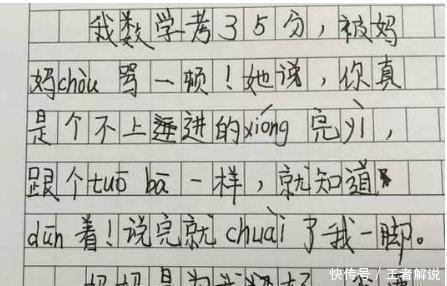 我数学考35分，被妈
妈chòu骂一顿！她说，你真
是个不上进的xióng完yì，
跟个tuō bā一样，就知道
dūn着！说完就chuài了我一脚。
快传号／王者解说